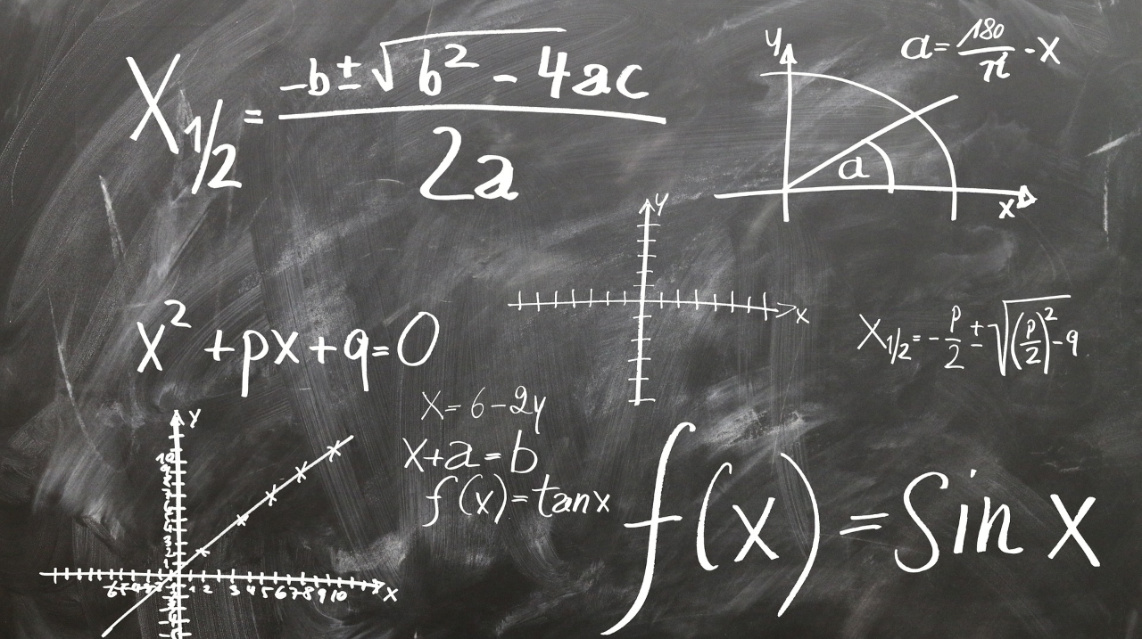 X₁/₂ = (-b ± √(b² - 4ac)) / 2a
y
a = 180/π · x
a
x
y
x
x² + px + q = 0
X₁/₂ = -p/2 ± √((p/2)² - q)
x = 6 - 2y
x + a = b
f(x) = tan x
f(x) = Sin x
y
10
1 2 3 4 5 6 7 8 9 10
x